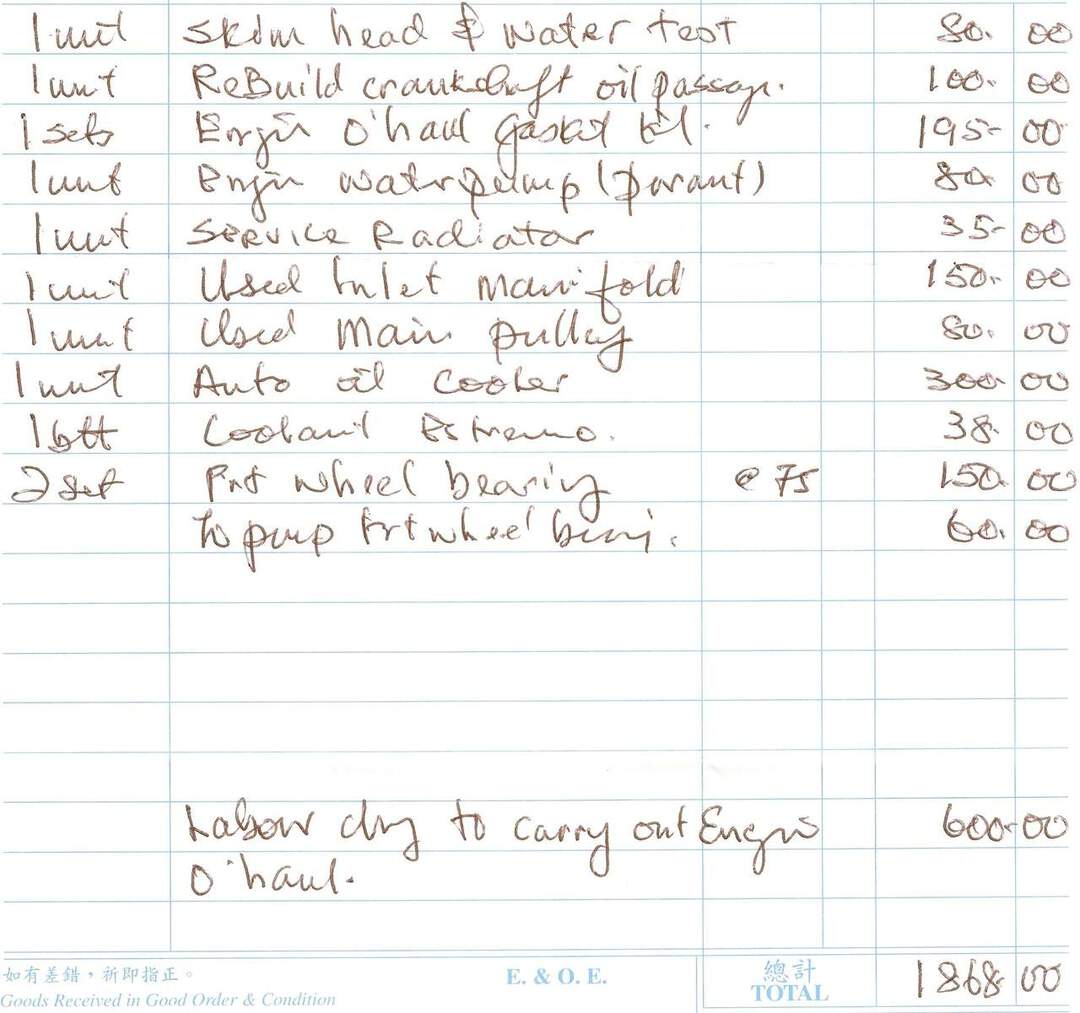 1 unit Skim head & water test 80. 00
1 unit ReBuild crankshaft oil passage. 100. 00
1 sets Engin O'haul gasket kit. 195- 00
1 unit Engin waterpump (Parant) 80. 00
1 unit Service Radiator 35- 00
1 unit Used Inlet Manifold 150. 00
1 unit Used Main pulley 80. 00
1 unit Auto oil cooler 300. 00
1 btt Coolant Estremo. 38. 00
2 set Frt wheel bearing @ 75 150. 00
To pump frt wheel bering. 60. 00
Labour chg to carry out Engin 600. 00
O'haul.
如有差錯，祈即指正。 E. & O. E. 總計 1868. 00
Goods Received in Good Order & Condition TOTAL